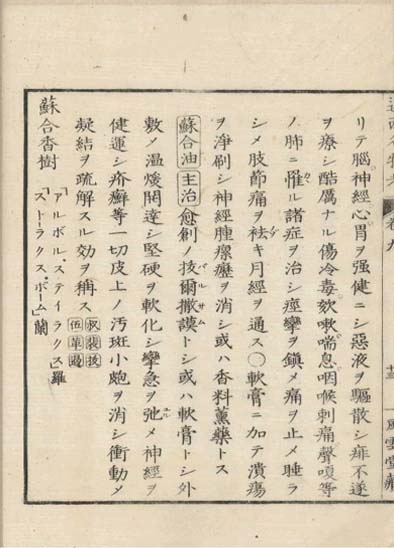 リテ腦神經心胃ヲ强健ニシ惡液ヲ驅散シ痱不遂
ヲ療シ酷厲ナル傷冷毒欬嗽喘息咽喉刺痛聲嗄等
ノ肺ニ罹ル諸症ヲ治シ痙攣ヲ鎭メ痛ヲ止メ睡ラ
シメ肢節痛ヲ袪キ月經ヲ通ス〇軟膏ニ加テ潰瘍
ヲ淨刷シ神經腫瘰癧ヲ消シ或ハ香料薰藥トス
蘇合油 主治 愈創ノ拔爾撒謨トシ或ハ軟膏トシ外
バルサム
敷メ溫煖開達シ堅硬ヲ軟化シ攣急ヲ弛メ神經ヲ
健運シ疥癬等一切皮上ノ汚斑小皰ヲ消シ衝動メ
凝結ヲ疏解スル効ヲ稱ス
蘇合香樹
「アルボル、ステイラクス」羅
「ストラクス、ボーム」蘭
風雲堂藏